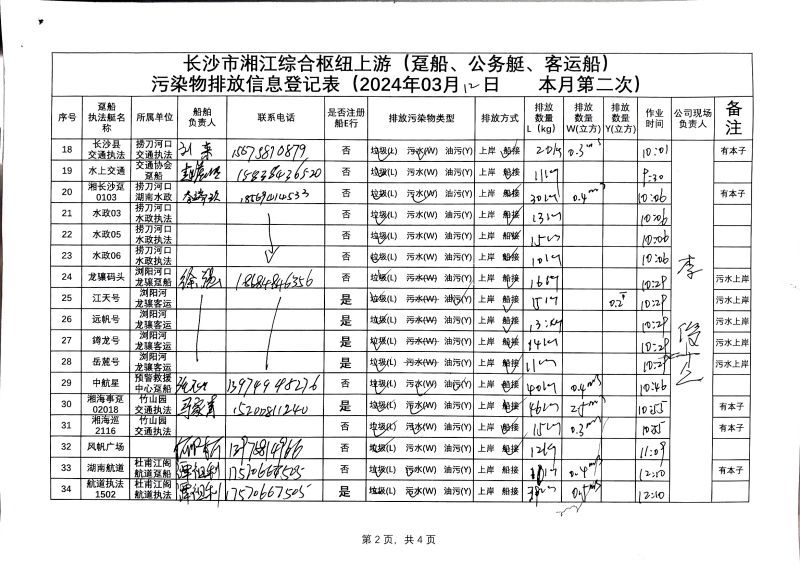 长沙市湘江综合枢纽上游（趸船、公务艇、客运船）
污染物排放信息登记表（2024年03月12日 本月第二次）
序号 趸船执法艇名称 所属单位 船舶负责人 联系电话 是否注册船E行 排放污染物类型 排放方式 排放数量L（kg） 排放数量W(立方) 排放数量Y(立方) 作业时间 公司现场负责人 备注
18 长沙县交通执法 捞刀河口交通执法 否 垃圾(L) 污水(W) 油污(Y) 上岸 船接 0.3m³ 10:01 有本子
19 水上交通 交通协会趸船 否 垃圾(L) 污水(W) 油污(Y) 上岸 船接 11kg
20 湘长沙趸0103 捞刀河口湖南水政 否 垃圾(L) 污水(W) 油污(Y) 上岸 船接 30kg 0.4m³ 10:06 有本子
21 水政03 捞刀河口水政执法 否 垃圾(L) 污水(W) 油污(Y) 上岸 船接 13kg 10:06
22 水政05 捞刀河口水政执法 否 垃圾(L) 污水(W) 油污(Y) 上岸 船接 15kg 10:06
23 水政06 捞刀河口水政执法 否 垃圾(L) 污水(W) 油污(Y) 上岸 船接 10kg 10:06
24 龙骧码头 浏阳河口龙骧趸船 18684846356 否 垃圾(L) 污水(W) 油污(Y) 上岸 船接 16kg 10:29 污水上岸
25 江天号 浏阳河龙骧客运 是 垃圾(L) 污水(W) 油污(Y) 上岸 船接 10:29 污水上岸
26 远帆号 浏阳河龙骧客运 是 垃圾(L) 污水(W) 油污(Y) 上岸 船接 10:29 污水上岸
27 鐏龙号 浏阳河龙骧客运 是 垃圾(L) 污水(W) 油污(Y) 上岸 船接 14kg 10:29 污水上岸
28 岳麓号 浏阳河龙骧客运 是 垃圾(L) 污水(W) 油污(Y) 上岸 船接 11kg 10:29 污水上岸
29 中航星 预警救援中心趸船 13974998276 否 垃圾(L) 污水(W) 油污(Y) 上岸 船接 40kg 0.4m³ 10:46
30 湘海事趸02018 竹山园交通执法 15200811240 否 垃圾(L) 污水(W) 油污(Y) 上岸 船接 46kg 10:55 有本子
31 湘海巡2116 竹山园交通执法 否 垃圾(L) 污水(W) 油污(Y) 上岸 船接 15kg 0.3m³ 10:55 有本子
32 风帆广场 否 垃圾(L) 污水(W) 油污(Y) 上岸 船接 12kg 11:09
33 湖南航道 杜甫江阁航道趸船 17570667505 否 垃圾(L) 污水(W) 油污(Y) 上岸 船接 0.4m³ 12:10 有本子
34 航道执法1502 杜甫江阁航道执法 17570667505 是 垃圾(L) 污水(W) 油污(Y) 上岸 船接 12:10
第 2 页，共 4 页